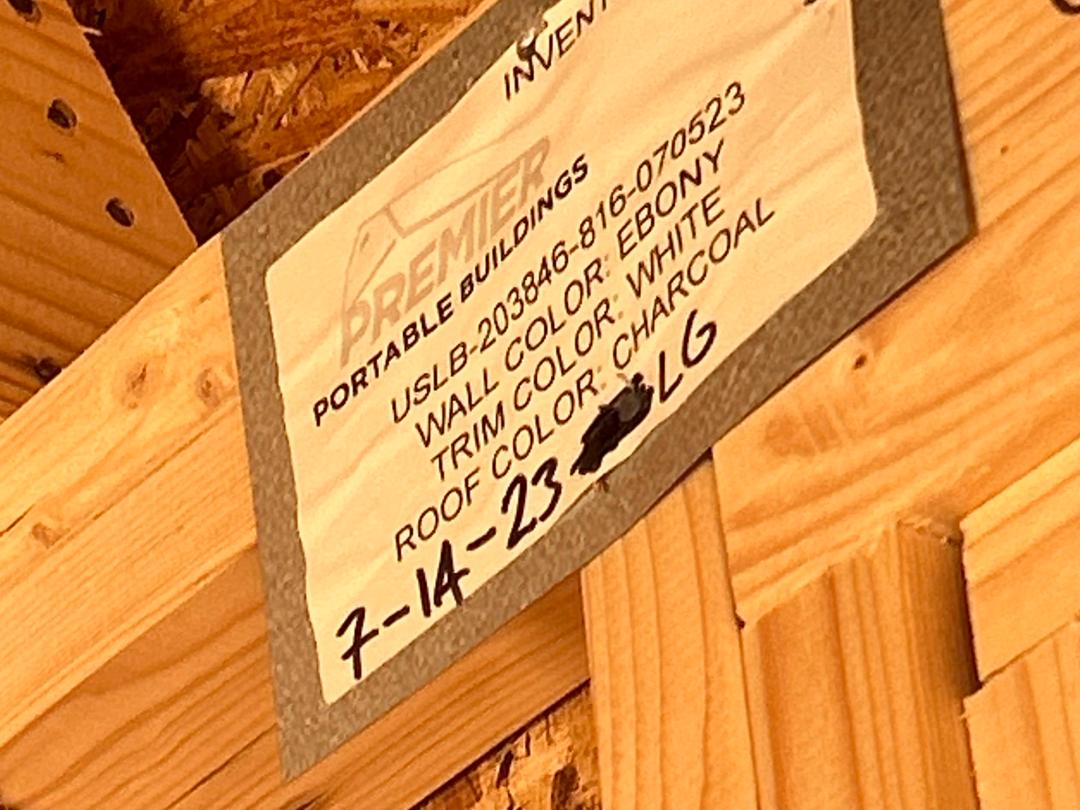 PREMIER
PORTABLE BUILDINGS
USLB-203846-816-070523
WALL COLOR: EBONY
TRIM COLOR: WHITE
ROOF COLOR: CHARCOAL
7-14-23 LG